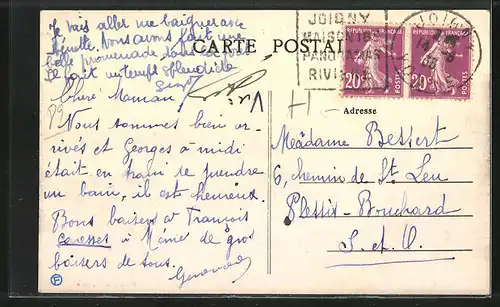 Je vais aller me baigner avec
Minette. Nous avons fait une
belle promenade tous
Il fait un temps splendide
CARTE POSTALE
JOIGNY
MAISONS
PANORAMAS
RIVIÈRE
JOIGNY
REPUBLIQUE FRANÇAISE
20c POSTES
REPUBLIQUE FRANÇAISE
20c POSTES
Adresse
Chère Maman,
Nous sommes bien ar-
rivés et Georges à midi
était en train de prendre
un bain, il est heureux.
Bons baisers à François
caresses à Mémé de gros
baisers de tous.
Madame Bessert
6, chemin de St Leu
Plessis-Bouchard
S. et O.